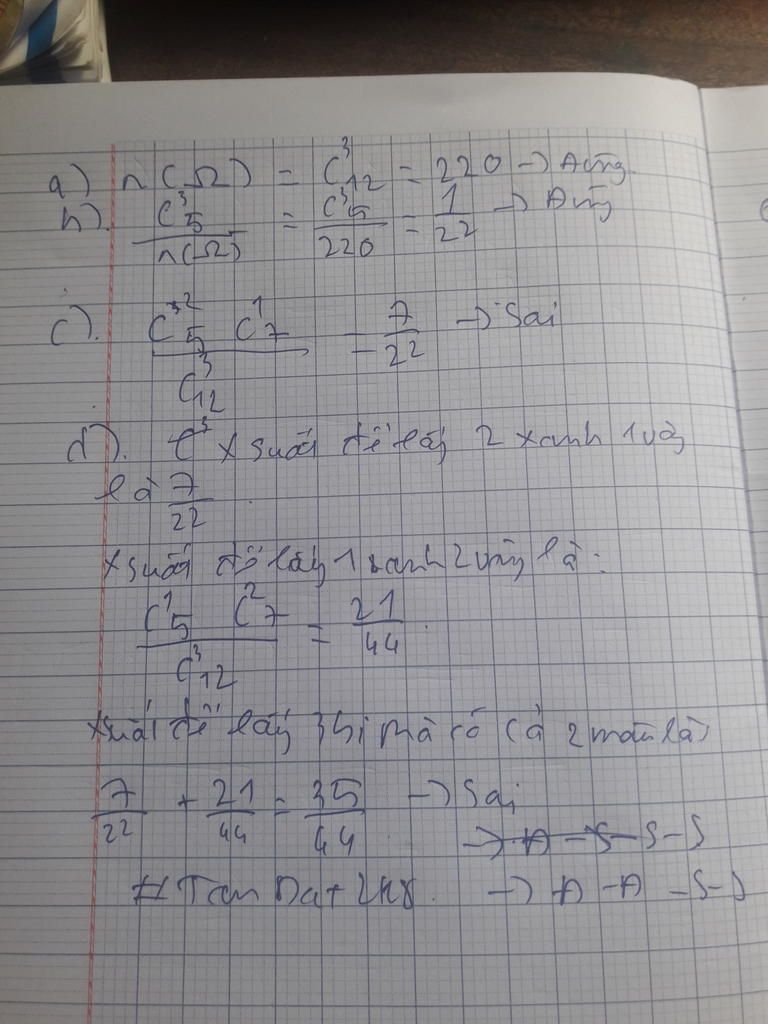 a) n(Ω) = C³₁₂ = 220 → Đúng.
b). C³₅ / n(Ω) = C³₅ / 220 = 1/22 → Đúng
c). C²₅ C¹₇ / C³₁₂ = 7/22 → Sai
d). Xsuất để lấy 2 xanh 1 vàng
là 7/22.
Xsuất để lấy 1 xanh 2 vàng là:
C¹₅ C²₇ / C³₁₂ = 21/44.
Xsuất để lấy 3 bi mà có cả 2 màu là
7/22 + 21/44 = 35/44 → Sai
→ Đ - S - S - S
→ Đ - Đ - S - S